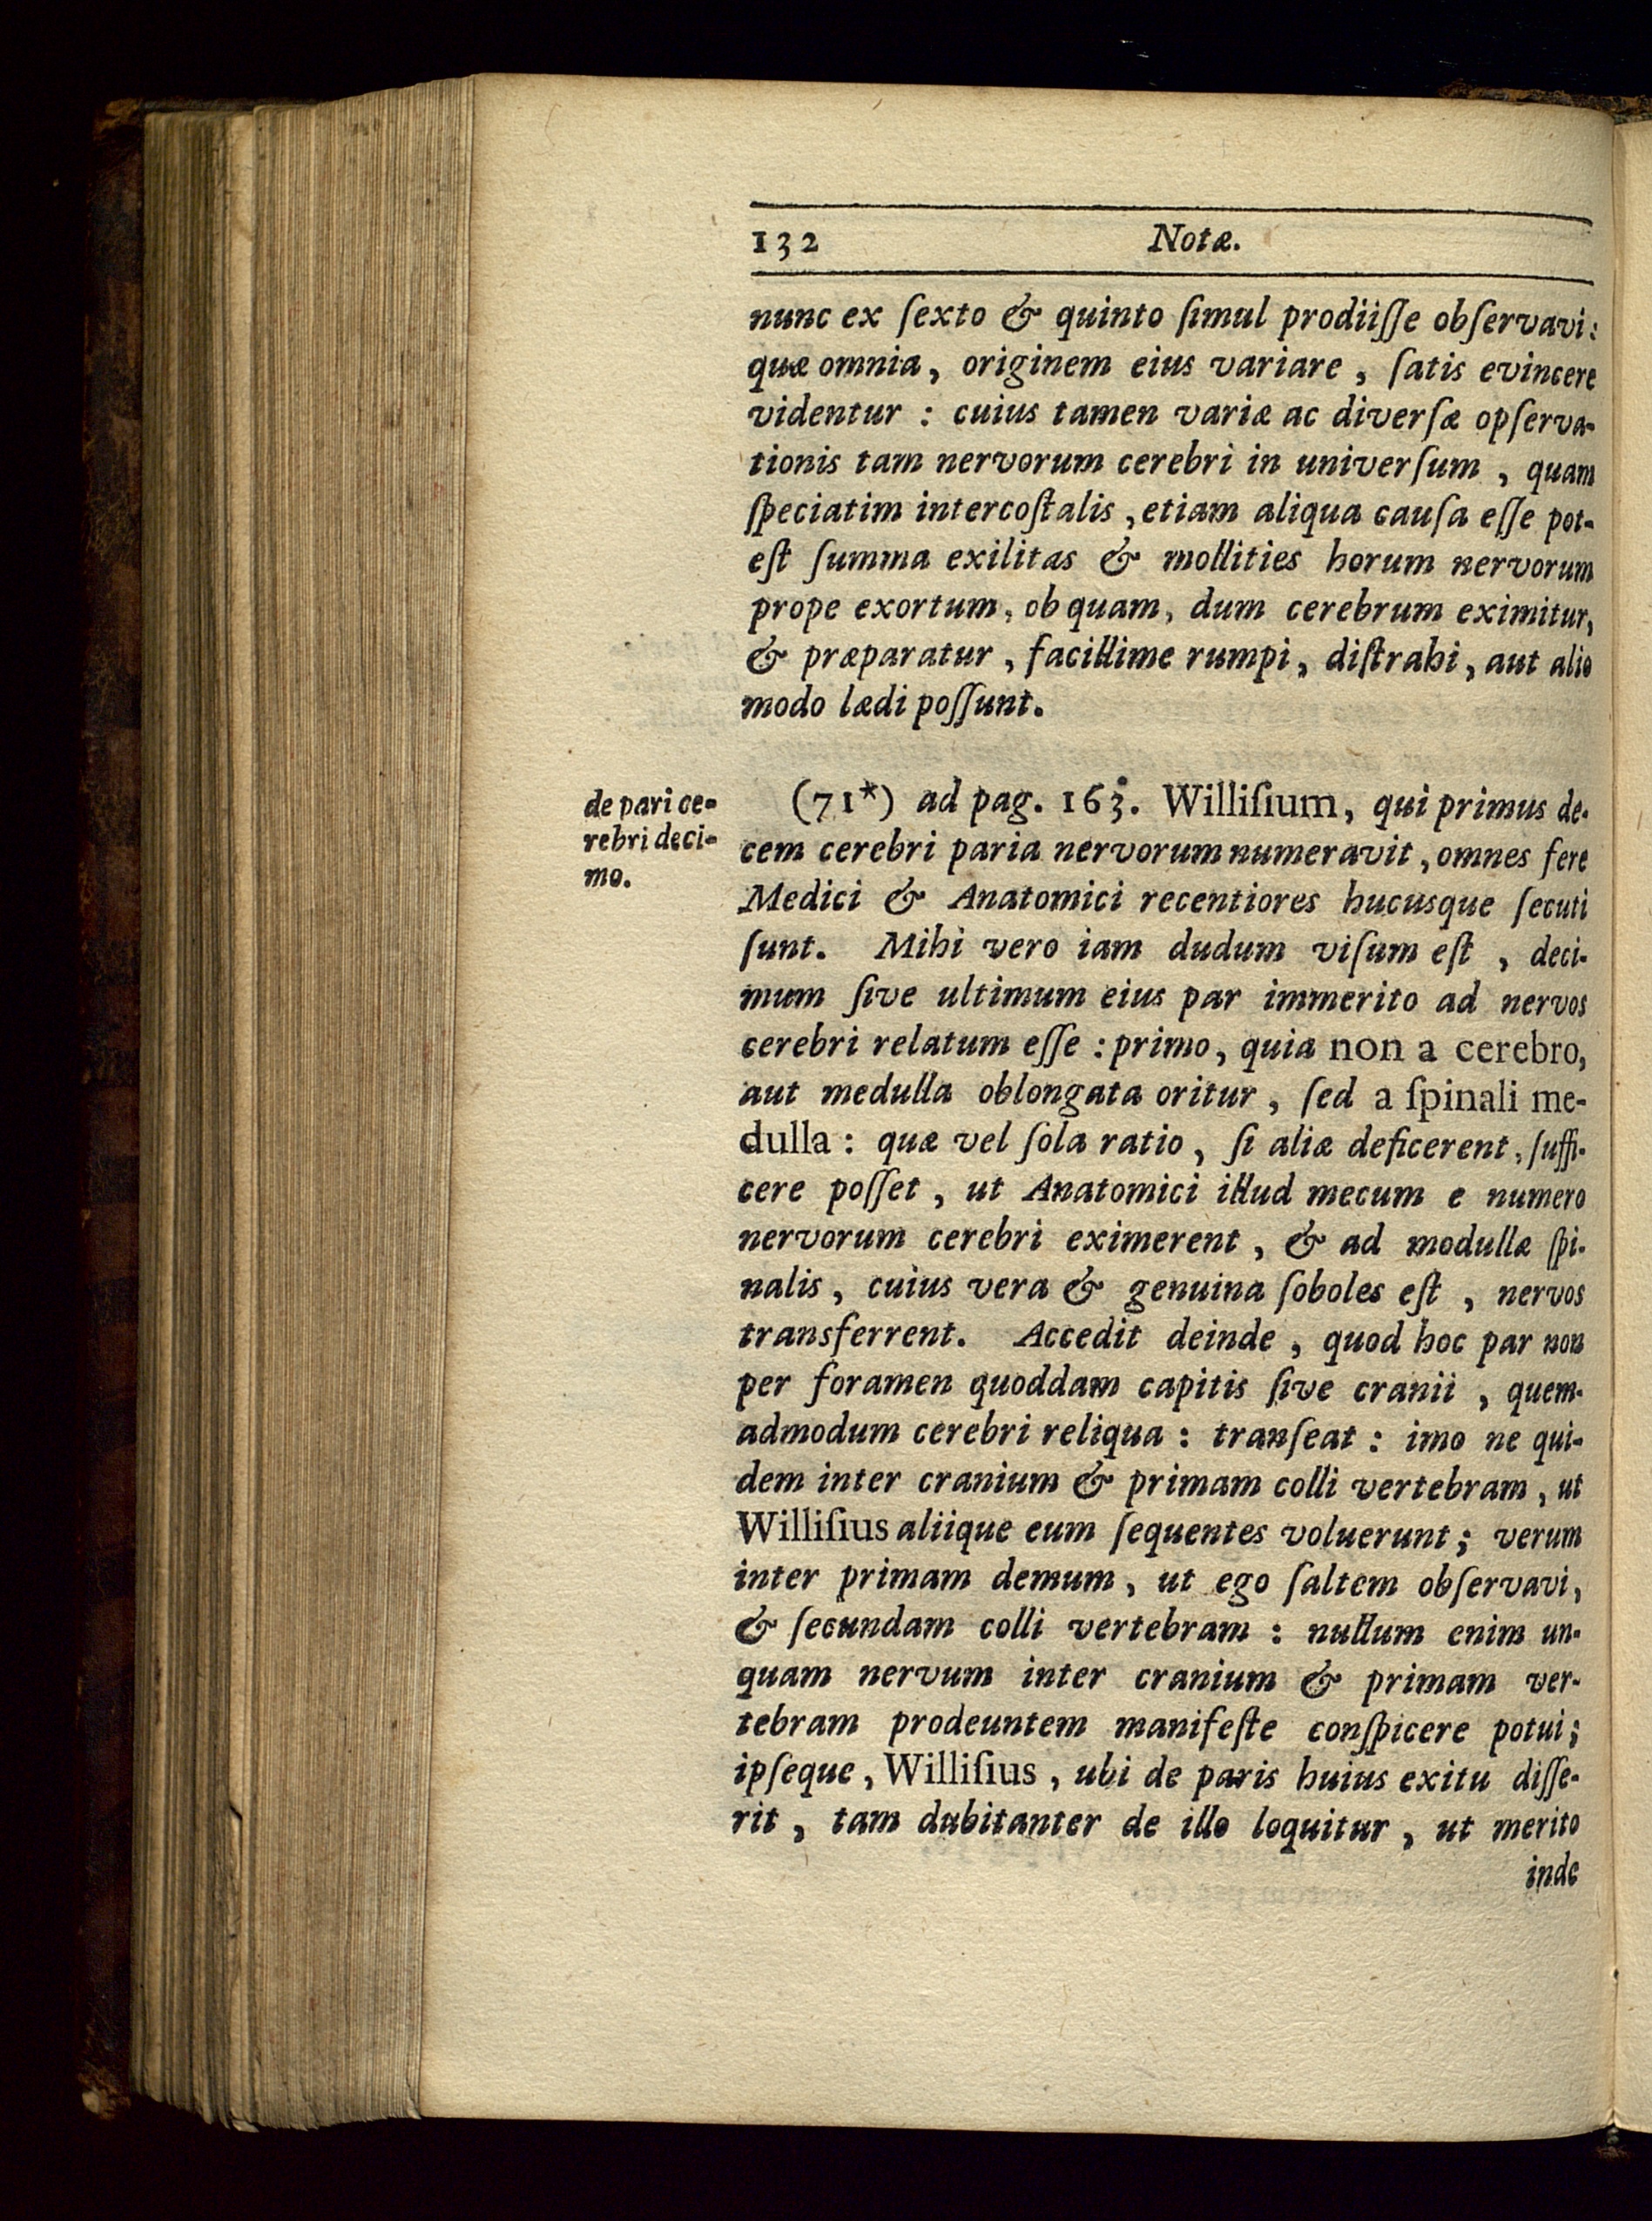 132 Notæ.
nunc ex ſexto & quinto ſimul prodiiſſe obſervavi:
quæ omnia, originem eius variare, ſatis evincere
videntur : cuius tamen variæ ac diverſæ opſerva-
tionis tam nervorum cerebri in univerſum, quam
ſpeciatim intercoſtalis, etiam aliqua cauſa eſſe pot-
eſt ſumma exilitas & mollities horum nervorum
prope exortum, ob quam, dum cerebrum eximitur,
& præparatur, facillime rumpi, diſtrahi, aut alio
modo lædi poſſunt.
de pari ce-
rebri deci-
mo.
(71*) ad pag. 163. Williſium, qui primus de-
cem cerebri paria nervorum numeravit, omnes fere
Medici & Anatomici recentiores hucusque ſecuti
ſunt. Mihi vero iam dudum viſum eſt, deci-
mum ſive ultimum eius par immerito ad nervos
cerebri relatum eſſe : primo, quia non a cerebro,
aut medulla oblongata oritur, ſed a ſpinali me-
dulla : quæ vel ſola ratio, ſi aliæ deficerent, ſuffi-
cere poſſet, ut Anatomici illud mecum e numero
nervorum cerebri eximerent, & ad modullæ ſpi-
nalis, cuius vera & genuina ſoboles eſt, nervos
transferrent. Accedit deinde, quod hoc par non
per foramen quoddam capitis ſive cranii, quem-
admodum cerebri reliqua : tranſeat : imo ne qui-
dem inter cranium & primam colli vertebram, ut
Williſius aliique eum ſequentes voluerunt; verum
inter primam demum, ut ego ſaltem obſervavi,
& ſecundam colli vertebram : nullum enim un-
quam nervum inter cranium & primam ver-
tebram prodeuntem manifeſte conſpicere potui;
ipſeque, Williſius, ubi de paris huius exitu diſſe-
rit, tam dubitanter de illo loquitur, ut merito
inde